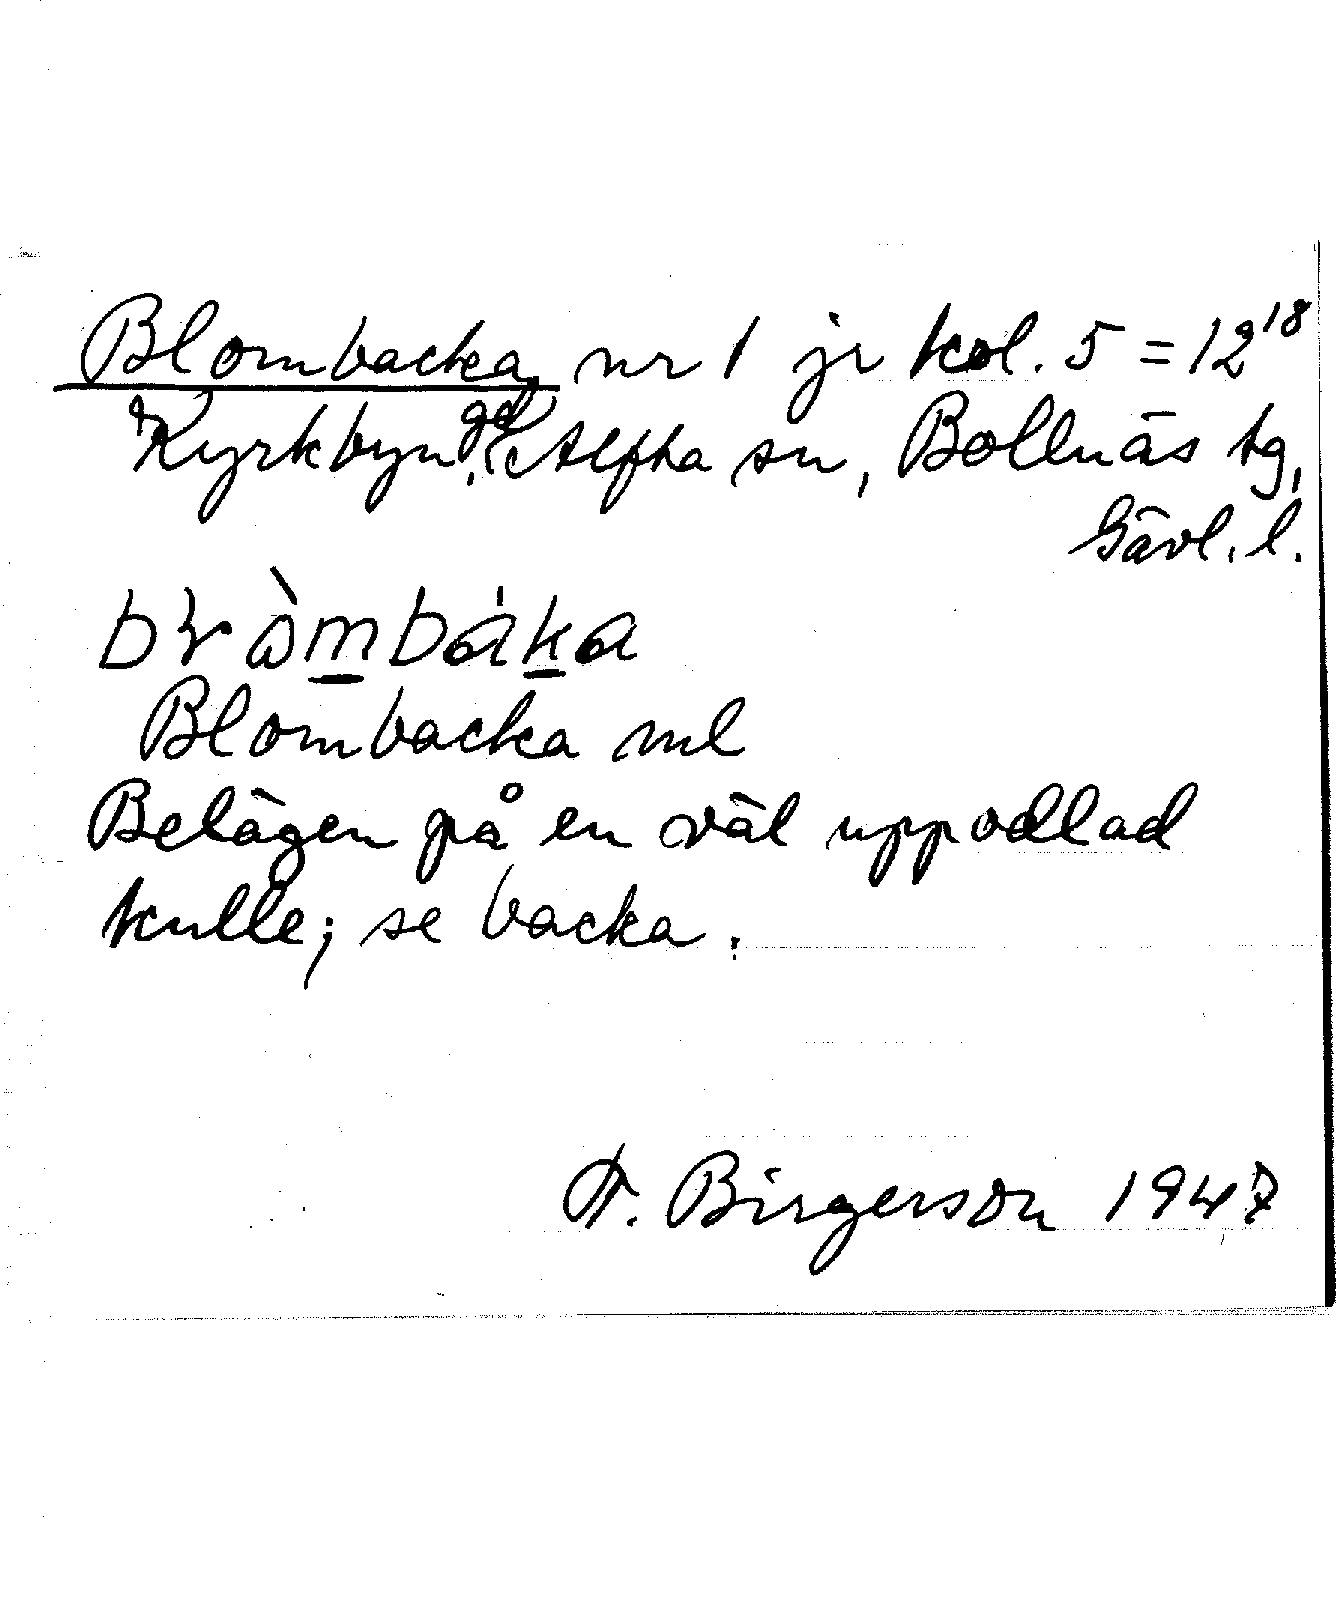 Blombacka, nr 1 jr kol. 5 = 12¹⁸
Kyrkbyn, gd, Alfta sn, Bollnäs tg,
Gävl. l.
Blombacka ml
Belägen på en väl uppodlad
kulle; se backa.
H. Birgerson 1947